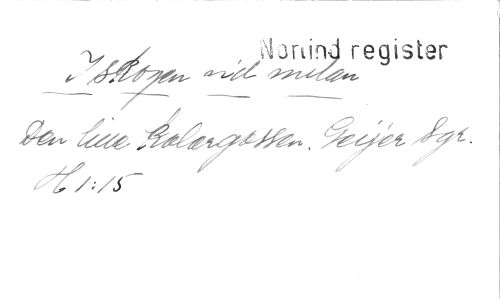 Norlind register
I skogen vid milan
Den lille Kolargossen. Geijer Sgr.
H 1:15